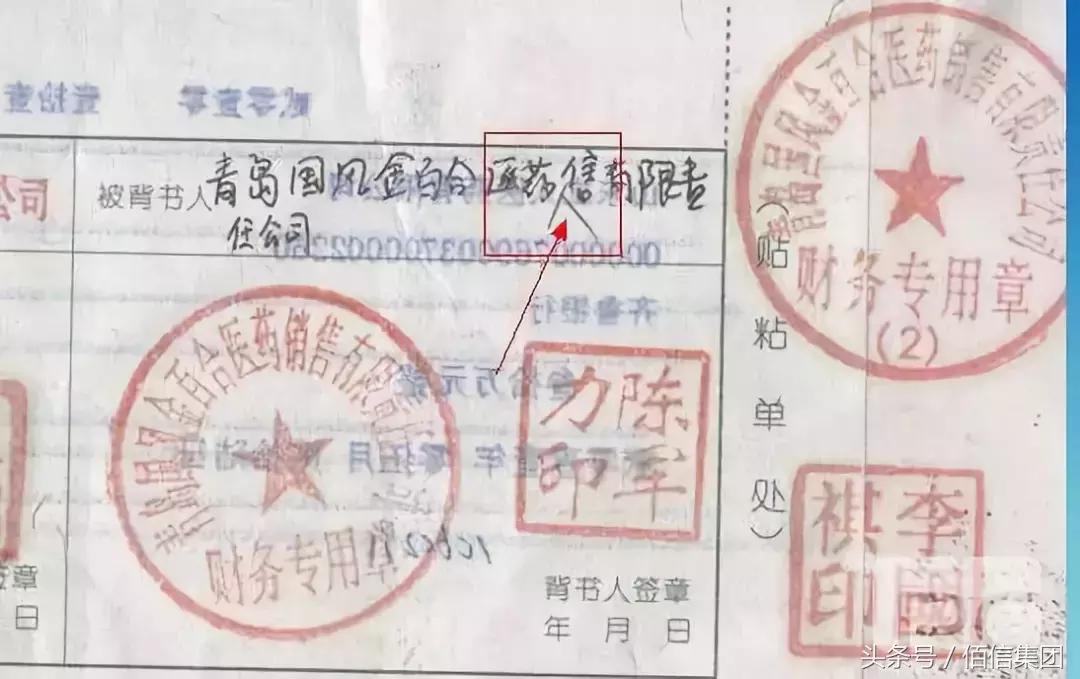 贰零壹零 壹拾壹
被背书人 青岛国风金百合医药信有限责
任公司
青岛国风金百合医药销售有限责任公司
财务专用章
陈军力印
背书人签章
年 月 日
签章
日
齐鲁银行
叁拾万元整
(贴粘单处)
青岛国风金百合医药销售有限责任公司
财务专用章
(2)
头条号 / 佰信集团